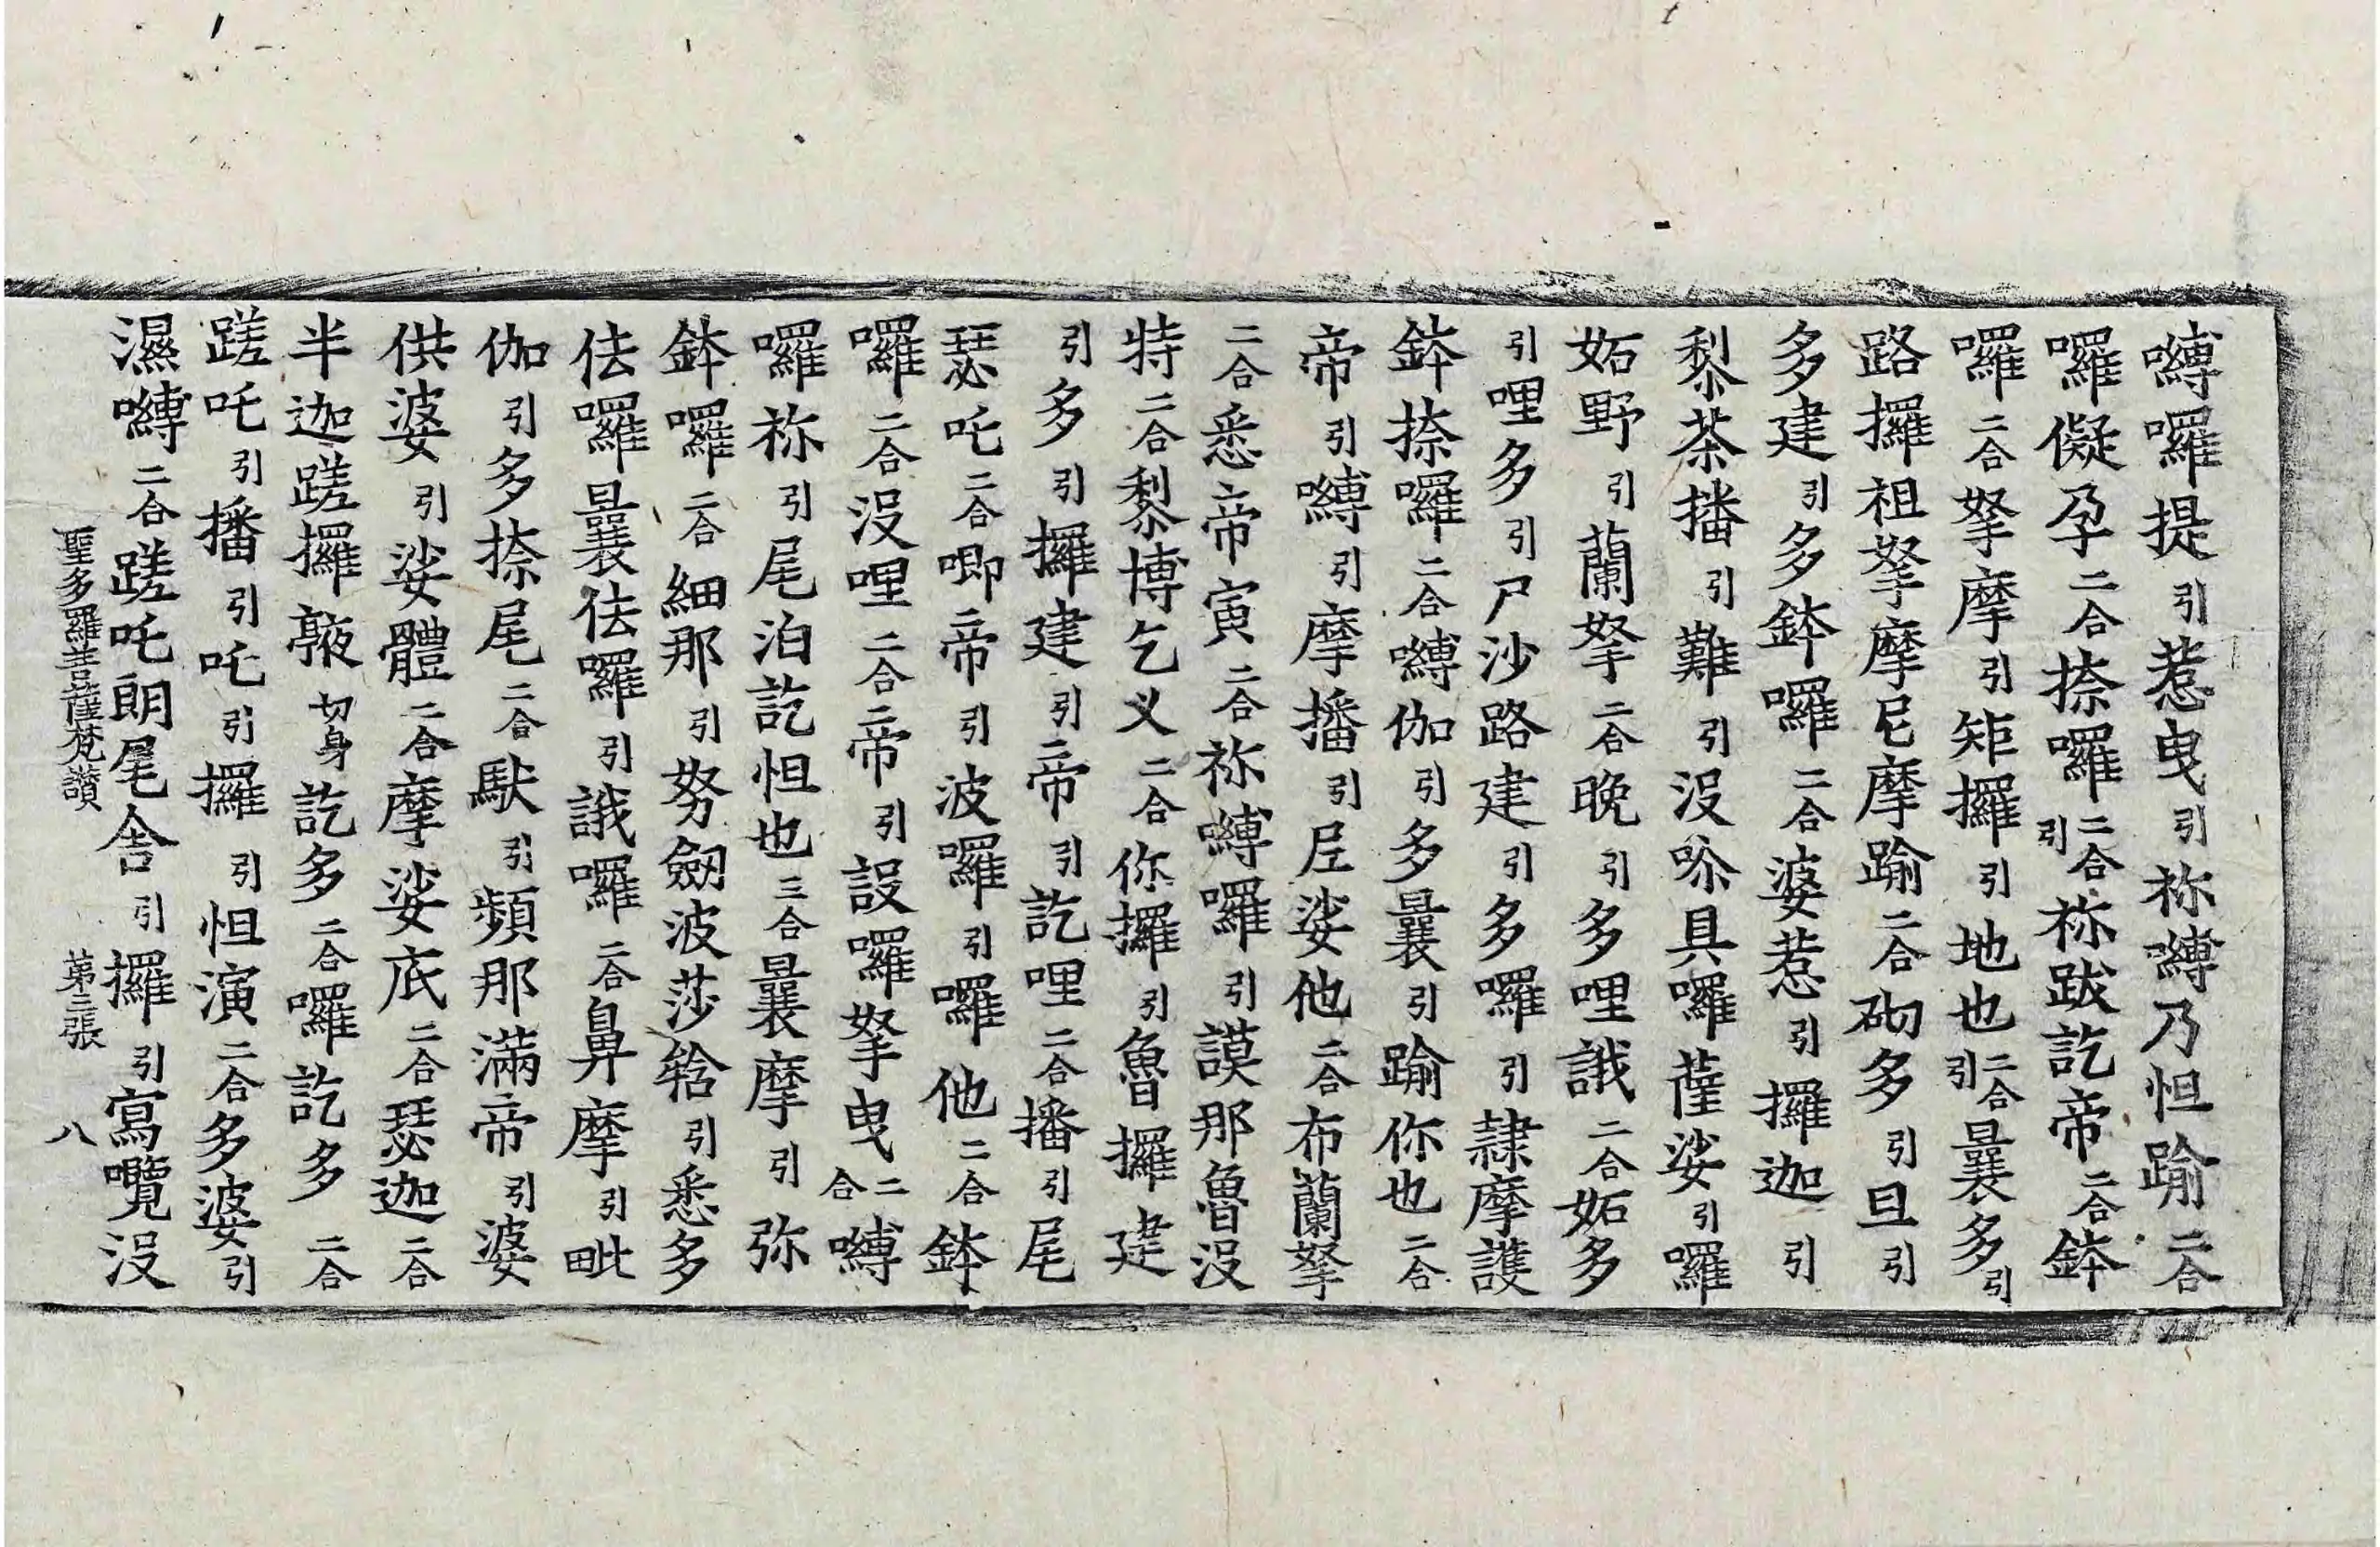 嚩囉提引惹曳引祢嚩乃怛踰二合
囉儗孕二合捺囉二合引祢跋訖帝二合鉢
囉二合拏摩引矩攞引地也二合引曩多引
路攞祖拏摩尼摩踰二合砌多引旦引
多建引多鉢囉二合婆惹引攞迦引
黎茶播引難引没嚟具囉薩娑引囉
妬野引蘭拏二合晚引多哩誐二合妬多
引哩多引尸沙路建引多囉引隷摩護
鉢捺囉二合嚩伽引多曩引踰你也二合
帝引嚩引摩播引𡰱娑他二合布蘭拏
二合悉帝寅二合祢嚩囉引謨那魯没
特二合黎博乞义二合你攞引魯攞建
引多引攞建引帝引訖哩二合播引尾
瑟吒二合唧帝引波囉引囉他二合鉢
囉二合没哩二合帝引設囉拏曳二合嚩
囉祢引尾泊訖怛也三合曩摩引弥
鉢囉二合細那引努劔波莎㗨引悉多
佉囉曩佉囉引誐囉二合鼻摩引毗
伽引多捺尾二合馱引頻那滿帝引婆
供婆引娑體二合摩娑底二合瑟迦二合
半迦蹉攞𩩲切身訖多二合囉訖多二合
蹉吒引播引吒引攞引怛演二合多婆引
濕嚩二合蹉吒朗尾舍引攞引寫囕没
聖多羅菩薩梵讃 第二張 八